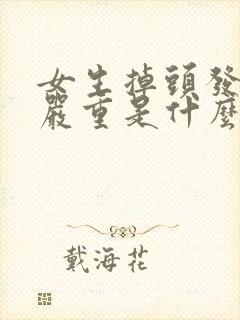 女生掉頭發
嚴重是什麼
戴海花